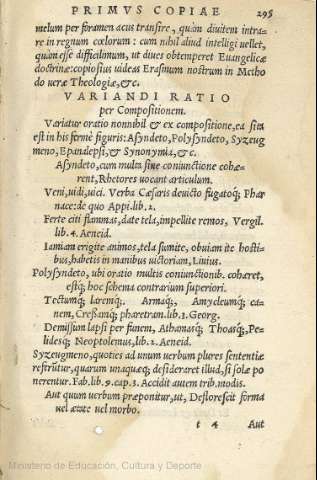 PRIMVS COPIAE 295
melum per foramen acus transire, quàm diuitem intra-
re in regnum cœlorum: cum nihil aliud intelligi uellet,
quàm esse difficilimum, ut diues obtemperet Euangelicæ
doctrinæ: copiosius uideas Erasmum nostrum in Metho
do ueræ Theologiæ, &c.
VARIANDI RATIO
per Compositionem.
Variatur oratio nonnihil & ex compositione, ea sita
est in his fermè figuris: Asyndeto, Polysyndeto, Syzeug
meno, Epanalepsi, & Synonymia, &c.
Asyndeto, cum multa sine coniunctione cohæ-
rent, Rhetores uocant articulum.
Veni, uidi, uici. Verba Cæsaris deuicto fugatoq; Phar
nace: de quo Appi. lib. 2.
Ferte citi flammas, date tela, impellite remos, Vergil.
lib. 4. Aeneid.
Iam iam erigite animos, tela sumite, obuiam ite hosti-
bus, habetis in manibus uictoriam, Liuius.
Polysyndeto, ubi oratio multis coniunctionib. cohæret,
estq; hoc schema contrarium superiori.
Tectumq; laremq;. Armaq;, Amycleumq; ca-
nem, Cressamq; pharetram. lib. 3. Georg.
Demissum lapsi per funem, Athamasq; Thoasq; Pe-
lidesq; Neoptolemus, lib. 2. Aeneid.
Syzeugmeno, quoties ad unum uerbum plures sententiæ
referūtur, quarum unaquæq; desideraret illud, si solæ po
nerentur. Fab. lib. 9. cap. 3. Accidit autem trib. modis.
Aut quum uerbum præponitur, ut, Deflorescit forma
uel ætate uel morbo.
t 4 Aut
Ministerio de Educación, Cultura y Deporte